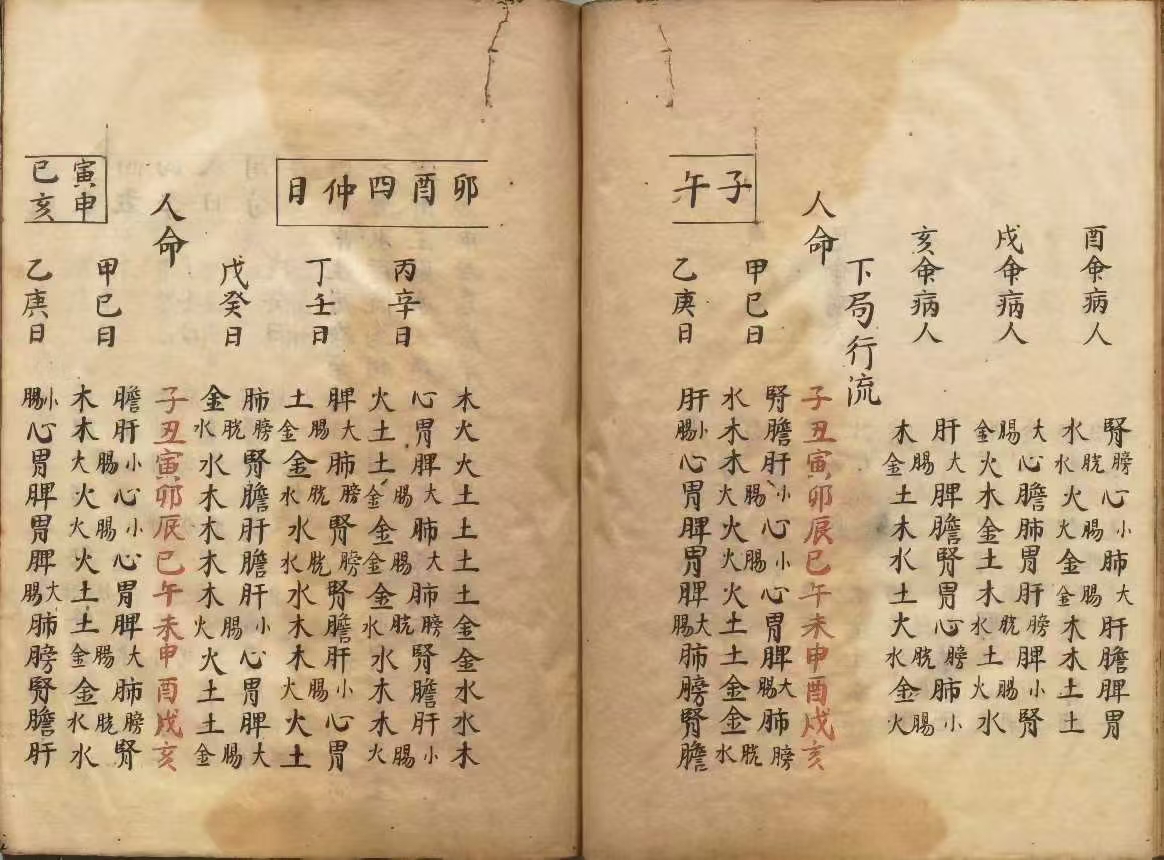 酉命病人
腎膀心小肺大肝膽脾胃
水水胱火火腸金金腸木木土土
戌命病人
大心膽肺胃肝膀脾小腎
金腸火木金土木水胱土火腸水
亥命病人
肝大脾膽腎胃心膀肺小
木金腸土木水土大水胱金火腸
下局行流
人命
子丑寅卯辰巳午未申酉戌亥
子午
甲巳日
腎膽肝小心小心胃脾大肺膀
水木木火腸火火腸火土土金腸金水胱
乙庚日
肝小腸心胃脾胃脾大腸肺膀腎膽
卯酉四仲日
木火火土土土土金金水水木
丙辛日
心胃脾大肺大肺膀腎膽肝小
火土土金腸金金腸金水胱水木木火腸
丁壬日
脾大肺膀腎膀腎膽肝小心胃
土金腸金水胱水水胱水木木火腸火土
戊癸日
肺膀腎膽肝膽肝小心胃脾大
金水胱水木木木木火腸火土土金腸
人命
子丑寅卯辰巳午未申酉戌亥
寅申
巳亥
甲巳日
膽肝小心小心胃脾大肺膀腎
木木大腸火火腸火土土金腸金水胱水
乙庚日
小腸心胃脾胃脾大腸肺膀腎膽肝